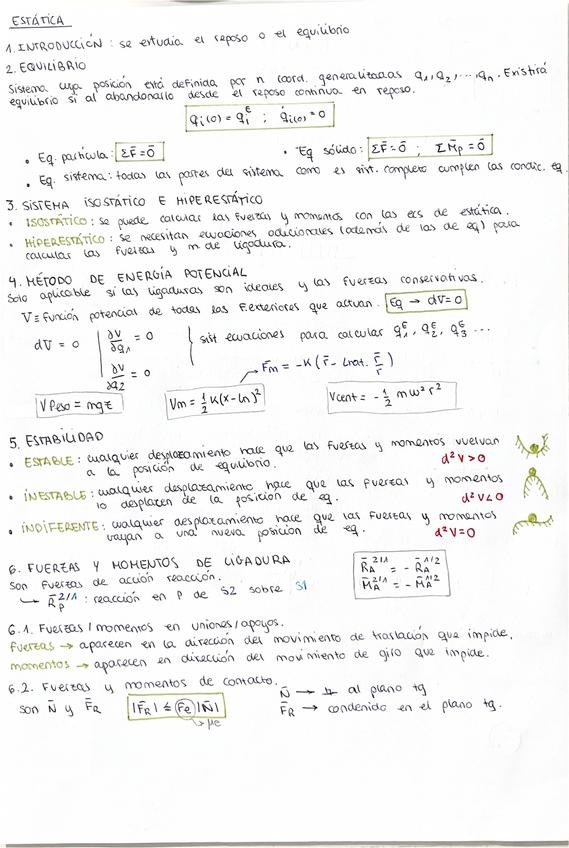 ESTÁTICA
1. INTRODUCCIÓN : se estudia el reposo o el equilibrio
2. EQUILIBRIO
Sistema cuya posición está definida por n coord. generalizadas q₁, q₂, ..., qₙ. Existirá
equilibrio si al abandonarlo desde el reposo continua en reposo.
qᵢ(0) = qᵢᴱ ; q̇ᵢ(0) = 0
• Eq. partícula: ΣF̄ = Ō • Eq sólido: ΣF̄ = Ō ; ΣM̄p = Ō
• Eq. sistema: todas las partes del sistema como es sist. completo cumplen las condic. eq.
3. SISTEMA ISOSTÁTICO E HIPERESTÁTICO
• ISOSTÁTICO : se puede calcular las fuerzas y momentos con las ecs de estática.
• HIPERESTÁTICO : se necesitan ecuaciones adicionales (además de las de eq) para
calcular las fuerzas y m de ligadura.
4. MÉTODO DE ENERGÍA POTENCIAL
Solo aplicable si las ligaduras son ideales y las fuerzas conservativas.
V ≡ función potencial de todas las F.exteriores que actúan. Eq → dV = 0
dV = 0 ∂V/∂q₁ = 0 sist ecuaciones para calcular q₁ᴱ, q₂ᴱ, q₃ᴱ ...
∂V/∂q₂ = 0 F̄m = -K (r̄ - Lnat. r̄/r)
V Peso = mgz Vm = 1/2 K(x - Ln)² Vcent = - 1/2 mω² r²
5. ESTABILIDAD
• ESTABLE : cualquier desplazamiento hace que las fuerzas y momentos vuelvan
a la posición de equilibrio. d²V > 0
• INESTABLE : cualquier desplazamiento hace que las fuerzas y momentos
lo desplacen de la posición de eq. d²V < 0
• INDIFERENTE : cualquier desplazamiento hace que las fuerzas y momentos
vayan a una nueva posición de eq. d²V = 0
6. FUERZAS Y MOMENTOS DE LIGADURA
Son fuerzas de acción reacción. R̄A²/¹ = - R̄A¹/²
↳ R̄p²/¹ : reacción en P de S2 sobre S1 M̄A²/¹ = - M̄A¹/²
6.1. Fuerzas / momentos en uniones/apoyos.
fuerzas → aparecen en la dirección del movimiento de traslación que impide.
momentos → aparecen en dirección del movimiento de giro que impide.
6.2. Fuerzas y momentos de contacto. N̄ → al plano tg
son N̄ y F̄R |F̄R| ≤ fe |N̄| F̄R → contenido en el plano tg.
→ μe